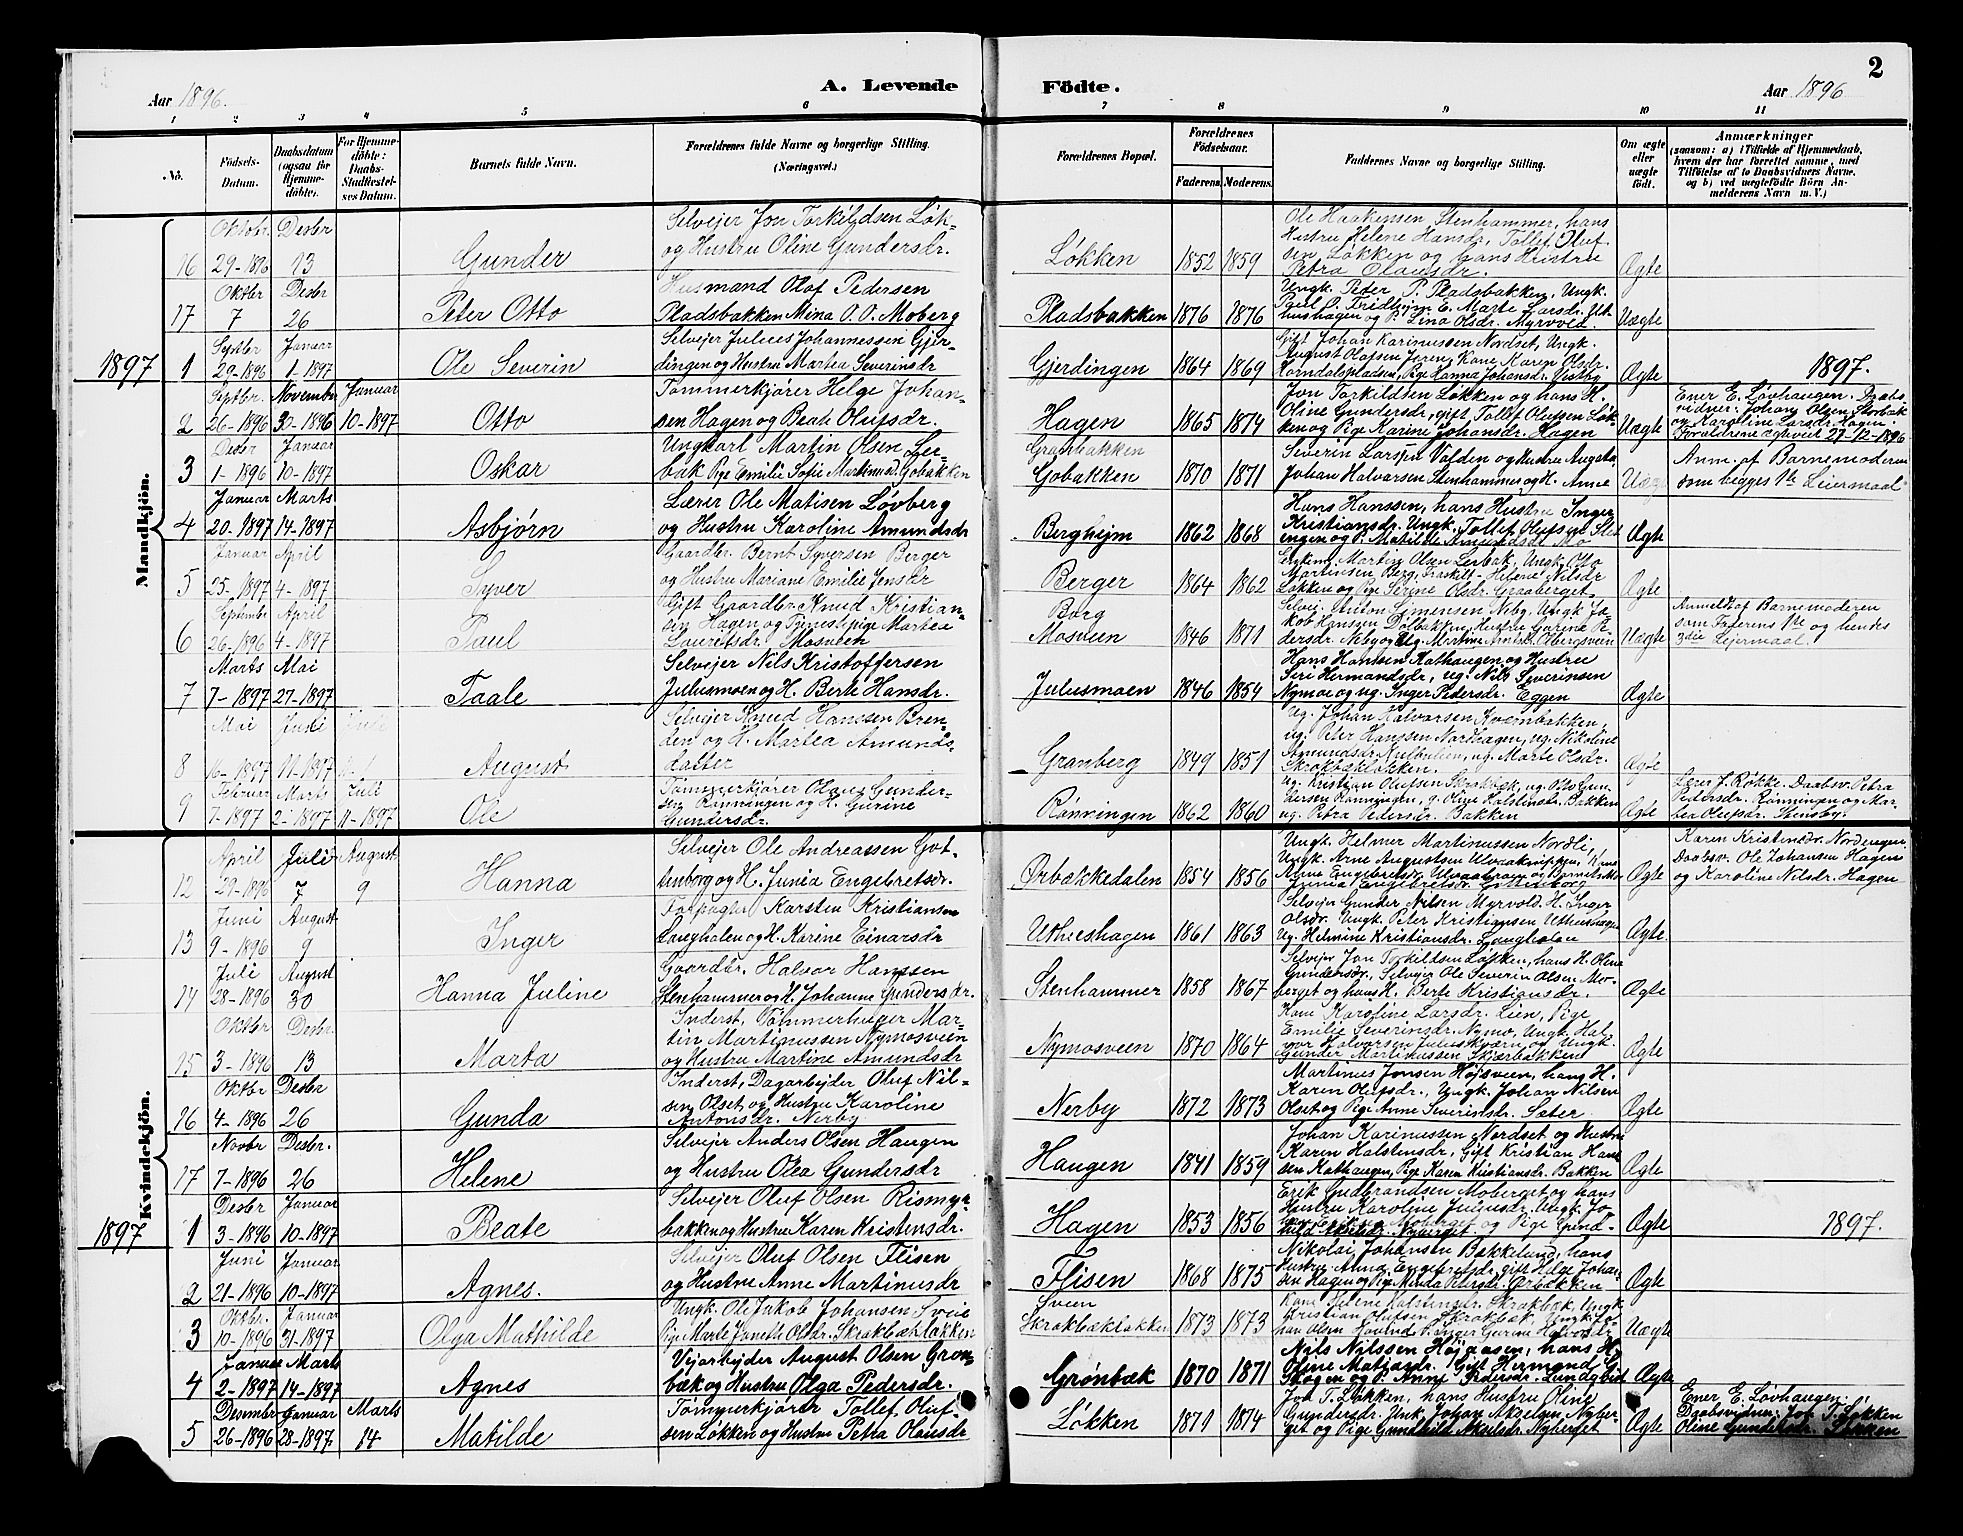 2
A. Levende Födte.
Aar 1896.
Aar 1896
1 2 3 4 5 6 7 8 9 10 11
No.
Födsels-Datum.
Daabsdatum (ogsaa for Hjemmedöbte).
For Hjemmedöbte: Daabs-Stadfæstelses Datum.
Barnets fulde Navn.
Forældrenes fulde Navne og borgerlige Stilling. (Næringsvei.)
Forældrenes Bopæl.
Forældrenes Födselsaar.
Faderens. Moderens.
Faddernes Navne og borgerlige Stilling.
Om ægte eller uægte födt.
Anmærkninger
(saasom: a) i Tilfælde af Hjemmedaab, hvem der har forrettet samme, med Tilföielse af to Daabsvidners Navne, og b) ved uægtefödte Börn Anmelderens Navn m. V.)
Mandkjön.
16 Oktbr. 29-1896 Desbr 13 Gunder
Selvejer Jon Torkildsen Løk-
og Hustru Oline Gundersdr.
Løkken 1852 1859
Ole Haakensen Stenhammer, hans
Hustru Helene Hansdr, Tollef Oluf
sen Løkken og hans Hustru
Petra Olausdr.
Ægte
17 Oktbr 7 Desbr 26 Peter Otto
Husmand Olof Pedersen
Pladsbakken Mina O. O. Moberg
Pladsbakken 1876 1876
Ungk. Peter P. Pladsbakken, Ungk.
Uægte
1897 1 Septbr 29-1896 Januar 1-1897 Ole Severin
Selvejer Julius Johannessen Gjer-
dingen og Hustru Martea Severinsdr
Gjerdingen 1864 1869
Gift Johan Karinussen Nordset, Ungk.
August Olafsen Joren, Kone Karen Olsdr.
Korndalspladsen, Pige Hanna Johansdr. Vestby
Ægte 1897.
2 Septbr. 26-1896 November 30-1896 Januar 10-1897 Otto
Tømmerkjører Helge Johan-
sen Hagen og Beate Olufsdr.
Hagen 1865 1874
Jon Torkildsen Løkken og hans H.
Oline Gundersdr, gift Tollef Olufsen Løk-
ken og Pige Karine Johansdr. Hagen
Uægte
Ener E. Løvhaugen. Daabs
vidner: Johan Olsen Storbak
og Karoline Larsdr. Hagen.
Forældrene ægteviet 27-12-1896
3 Desbr 1-1896 Januar 10-1897 Oskar
Ungkarl Martin Olsen Ler-
bak Pige Emilie Sofie Gobakken
Granbakken
Gobakken 1870 1871
Severin Larsen Valden og Hustru Augsta,
Johan Halvorsen Stenhammer og H. Anne
Uægte
Anm. af Barnemoderen
som begges 1ste Leiermaal
4 Januar 20-1897 Marts 14-1897 Asbjørn
Lærer Ole Matisen Løvberg
og Hustru Karoline Amundsdr
Berghejm 1862 1868
Hans Hanssen, hans Hustru Inger
Kristiansdr. Ungk. Tollef Olufsen Slet
engen og P. Matilde Amundsdr Mo
Ægte
5 Januar 25-1897 April 4-1897 Syver
Gaardbr. Bernt Syversen Berger
og Hustru Mariane Emilie Jensdr
Berger 1864 1862
Løkken og Pige Serine Olsdr. Graaberget
Ægte
6 Septembr 26-1896 April 4-1897 Paul
Gift Gaardbr Knud Kristian-
sen Hagen og Tjenestepige Martea
Lauritsdr. Mosveen
Borg
Mosveen 1846 1871
Selvej. Anton Simensen Neby, Ungk Ja
kob Hanssen Dølbakken, Hustru Gurine Pe-
dersdr.
Uægte
Anmeldt af Barnemoderen
som Faderens 1ste og hendes
3die Lejermaal.
7 Marts 7-1897 Mai 27-1897 Taale
Selvejer Nils Kristoffersen
Julusmoen og H. Berte Hansdr.
Julusmoen 1846 1854
Hans Hansen Kathaugen og Hustru
Siri Hermandsdr, ug. Nils Severinsen
Nymoe og ug. Inger Pedersdr. Eggen
Ægte
8 Mai 16-1897 Juli August
Selvejer Knud Hanssen Bren-
den og H. Martea Amunds-
datter
Granberg 1849 1851
Ug. Johan Halvorsen Kvernbakken,
ug. Peter Hanssen Nordhagen, ug. Nikoline
ug. Marte Olsdr.
Skrakbækløkken.
Ægte
9 Februar 7-1897 Marts 2-1897 Juli 11-1897 Ole
Tømmerkjører Olaus Gunder-
sen Rønningen og H. Gurine
Gundersdr.
Rønningen 1862 1860
ug. Kristian Olufsen Skrakbæk, ug. Otto Gun-
dersen Rønningen, g. Oline Halstinsdr. Bakken
ug. Petra Pedersdr. Bakken
Ægte
Lærer J. Røkke. Daabsv. Petra
Pedersdr. Rønningen og Mar-
tea Olufsdr. Stensby.
Kvindekjön.
12 April 29-1896 Juli 7 August 9 Hanna
Selvejer Ole Andreassen Got-
tenborg og H. Junia Engebretsdr.
Ørbækkedalen 1854 1856
Ungk. Helmer Martinussen Nordli,
Ægte
Karen Kristensdr. Nordengen
Daabsv. Ole Johansen Hagen
og Karoline Nilsdr. Hagen
13 Juni 9-1896 August 9 Inger
Forpagter Karsten Kristiansen
Langholen og H. Karine Einarsdr
Uthushagen 1861 1863
Selvejer Gunder Nilsen Myrvold. H. Inger
Olsdr. Ungk. Peter Kristiansen Uthushagen
Ug. Helmine Kristiansdr. Langholen
Ægte.
14 Juli 28-1896 August 30 Hanna Juline
Gaardbr. Halvor Hanssen
Stenhammer og H. Johanne Gundersdr.
Stenhammer 1858 1867
Selvejer Jon Torkildsen Løkken, hans H. Oline
Gundersdr, Selvejer Ole Severin Olsen Mo-
berget og hans H. Berte Kristiansdr.
Ægte
15 Oktbr 3-1896 Desbr 13 Marta
Inderst, Tømmerhuger Mar-
tin Martinussen Nymosveen
og Hustru Martine Amundsdr
Nymosveen 1870 1864
Kone Karoline Larsdr. Lien, Pige
Emilie Severinsdr. Nymo, Ungk. Hal
vor Halvorsen Juluskværn og Ungk.
Gunder Martinussen Skjærbakken
Ægte
16 Oktbr 4-1896 Desbr 26 Gunda
Inderst, Dagarbejder Oluf Nil-
sen Olset og Hustru Karoline
Antonsdr. Nerby
Nerby 1872 1873
Martinus Jonsen Højsveen, hans H.
Karen Olufsdr., Ungk. Johan Nilsen
Olset og Pige Anne Severinsdr. Sæter
Ægte
17 Novbr 7-1896 Desbr. 26 Helene
Selvejer Anders Olsen Haugen
og Hustru Olea Gundersdr
Haugen 1841 1859
Johan Karinussen Nordset og Hustru
Karen Halstensdr, Gift Kristian Han
sen Kathaugen, Pige Karen Kristiansdr. Bakken
Ægte
1897 1 Desbr 3-1896 Januar 10-1897 Beate
Selvejer Oluf Olsen Rismyr
bakken og Hustru Karen Kristensdr.
Hagen 1853 1856
Erik Gudbrandsen Moberget og hans
Hustru Karoline Juliusdr. Ungk. Jo
og Pige Gund-
hild Akselsdr. Nyberget
Ægte 1897.
2 Juni 21-1896 Januar 10-1897 Agnes.
Selvejer Oluf Olsen Flisen
og Hustru Anne Martinusdr
Flisen 1868 1875
Nikolai Johansen Bakkelund, hans
Hustru Anna Engebretsdr. gift Helge Johan-
sen Hagen og Pige Minda Petersdr. Ørbækken
Ægte
3 Oktbr. 10-1896 Januar 31-1897 Olga Mathilde
Ungk. Ole Jakob Johansen Sveie
Pige Marte Jonette Olsdr. Skrakbækløkken
Sveen
Skrakbækløkken 1873 1873
Kone Helene Halstensdr. Skrakbæk, Ungk
Kristian Olufsen Skrakbæk,
Uægte
4 Januar 2-1897 Marts 14-1897 Agnes
Vejarbejder August Olsen Grøn-
bæk og Hustru Olga Pedersdr.
Grønbæk 1870 1871
Nils Nilssen Højaasen, hans H.
Oline Matiasdr. Gift Hermand G.
Skogen og P. Anne Pedersdr. Lundgbid
Ægte
5 Desembr 26-1896 Januar 28-1897 Marts 14 Matilde
Tømmerkjører Tollef Oluf-
sen Løkken og Hustru Petra Olausdr
Løkken 1871 1874
Jon T. Løkken, hans Hustru Oline
Gundersdr. Unk. Johan Akselsen Nyber-
get og Pige Gundhild Akselsdr. Nyberget
Ægte
Ener E. Løvhaugen.
Daabsvidner: Jon T. Løkken
Oline Gundersdr. Løkken